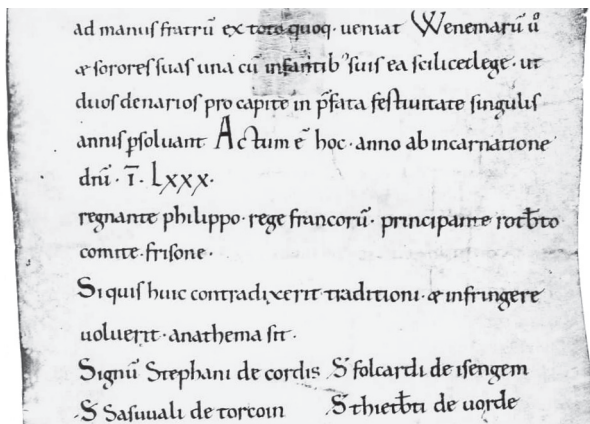 ad manus fratrū ex toto quoq· ueniat Wenemarū ů
& sorores suas una cū infantib' suis ea scilicet lege· ut
duos denarios pro capite in p̄fata festiuitate singulis
annis ꝑsoluant Actum ē hoc· anno ab incarnatione
dnī· ī· Lxxx·
regnante philippo· rege francorū· principante rotƀto
comite· frisone·
Si quis huic contradixerit traditioni· & infringere
uoluerit· anathema sit·
Signū Stephani de cordis S̄ folcardi de isengem
S̄ Sasuuali de torcoin S̄ thietƀti de uorde